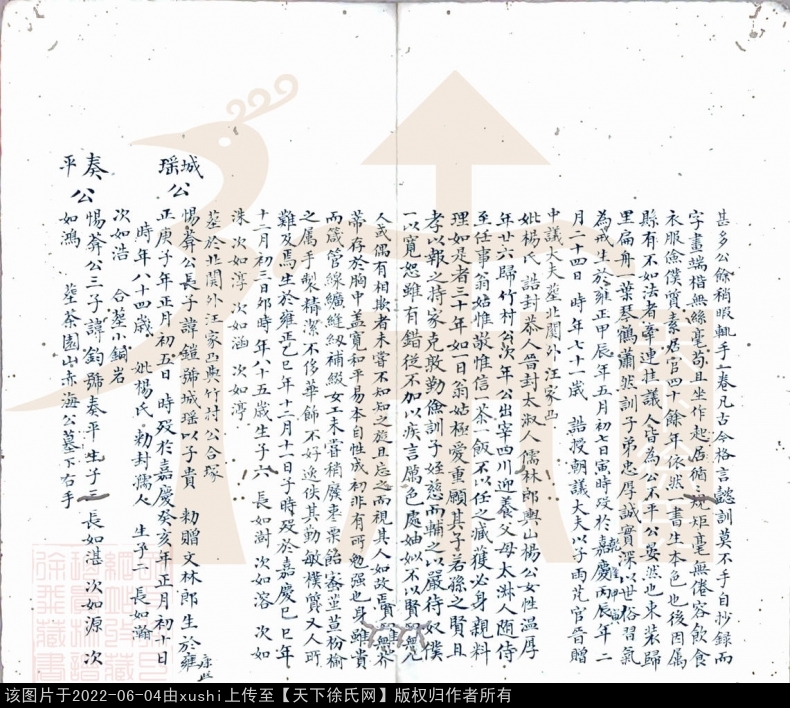 甚多公餘稍暇輒手一卷凡古今格言懿訓莫不手自抄錄而
字畫端楷無絲毫苟且坐作起居循規矩毫無倦容飲食
衣服儉僕質素居官四餘年依然一書生本色也後因屬
縣有不如法者牽連挂議人皆為公不平公妟然也束裝歸
里扁舟一葉琴鶴蕭然訓子弟忠厚誠實深以世俗習氣
為戒生於雍正甲辰年五月初七日寅時歿於嘉慶丙辰年二
月二十四日 時年七十一歲 誥授朝議大夫以子雨芃官晉贈
中議大夫塟北関外汪家凹
妣楊氏誥封恭人晉封太淑人儒林郎興山楊公女性溫厚
年廿六歸竹村公次年公出宰四川迎養父母太淋人随侍
至任事翁姑惟敬惟信一茶一飯不以任之臧獲必身親料
理如是者三十年如一日翁姑極愛重願其子若孫之賢且
孝以報之持家克敦勤儉訓子姪慈而輔之以嚴待奴僕
一以寬恕雖有錯從不加以疾言厲色處妯娌不以賢
人或偶有相欺者未嘗不知知之旋且忘之而視其人如故焉
蒂存於胸中盖寬和平易本自性成初非有所勉强也身雖貴
而箴管線纊縫紉補綴女工未嘗稍廢枣栗飴堇荁枌榆
之属手製精潔不侈華飾不好逸佚其勤敏樸質又人所
難及焉生於雍正乙巳年十二月十一日子時歿於嘉慶己巳年
十二月初三日卯時年八十五歲生子六 長如澍 次如溶 次如
洙 次如淳 次如涵 次如渟
塟於北関外汪家凹與竹村公合塚
城瑶公 惕斋公長子諱鎧號城瑶以子貴 勅贈文林郎生於雍
正庚子年正月初五日 時歿於嘉慶癸亥年正月初十日
時年八十四歲 妣楊氏 勅封孺人 生子二 長如瀚
次如浩 合塟小銅岩
奏平公 惕斋公三子諱鈞號奏平生子三 長如湛 次如源 次
如鴻 塟茶園山赤海公墓下右手
该图片于2022-06-04由xushi上传至【天下徐氏网】版权归作者所有